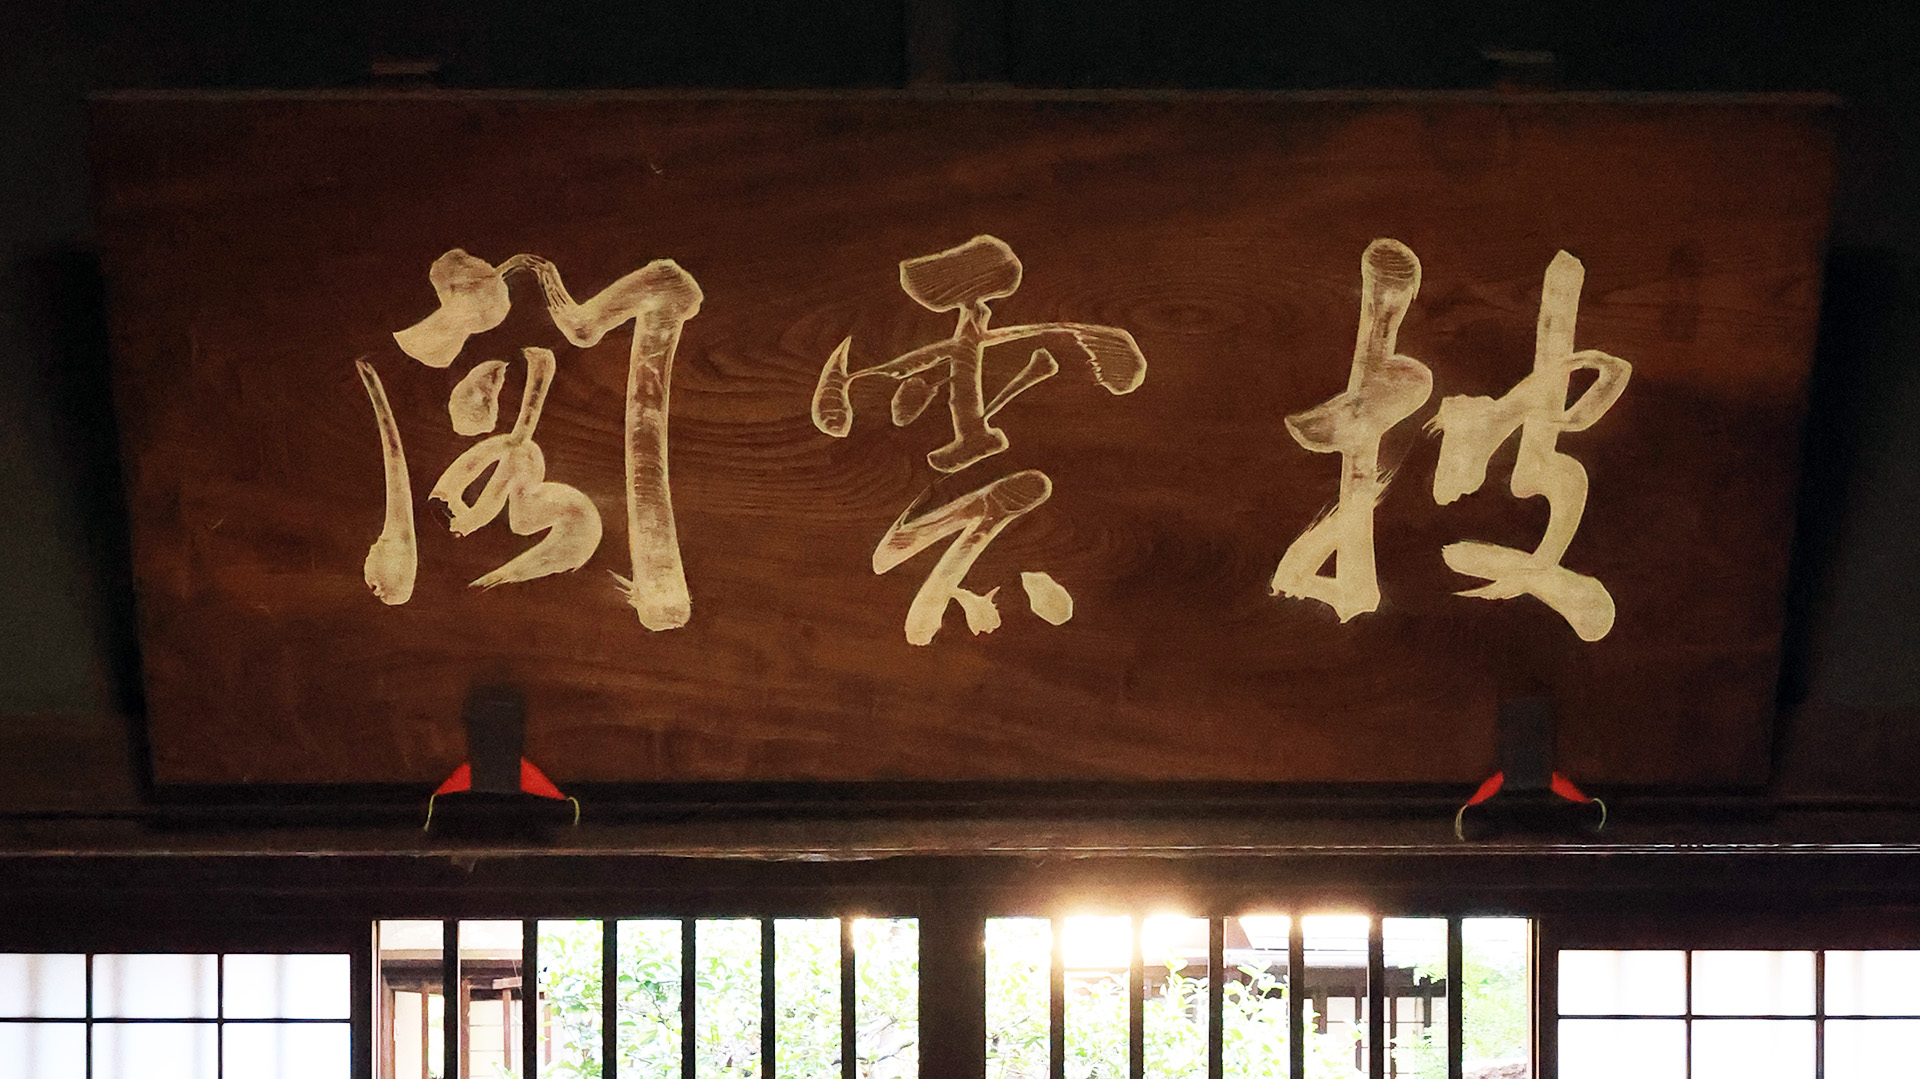 披雲閣